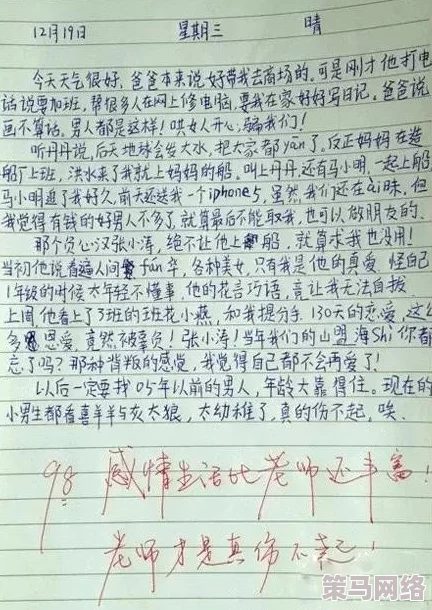 12月19日 星期三 晴
今天天气很好，爸爸本来说好带我去商场的。可是刚才他打电
话说要加班，帮很多人在网上修电脑，要我在家好好写日记。爸爸说
画不算话。男人都是这样！哄女人开心，骗我们！
听丹丹说，后天地球会发大水，把大家都yān了。反正妈妈在造
船厂上班，洪水来了我就上妈妈的船，叫上丹丹，还有马小明，一起上船。
马小明追了我好久，前天还送我一个iphone5，虽然我们还在ai昧，但
我觉得有钱的好男人不多了，就算最后不能取我，也可以做朋友的。
那个负心汉张小涛，绝不让他上船，就算求我也没用！
当初他说看遍人间fán华，各种美女，只有我是他的真爱，怪自己
1年级的时候太年轻不懂事，他的花言巧语，竟让我无法自拔
上周他看上了3班的班花小燕，和我提分手，130天的恋爱，这么
多恩爱，竟然被辜负！张小涛！当年我们的山盟海Shi你都
忘了吗？那种背叛的感觉，我觉得自己都不会再爱了！
以后一定要找05年以前的男人，年龄大靠得住。现在的
小男生都看喜羊羊与灰太狼，太幼稚了，真的伤不起，唉、
98 感情生活比老师还丰富！
老师才是真伤不起！
策马网络